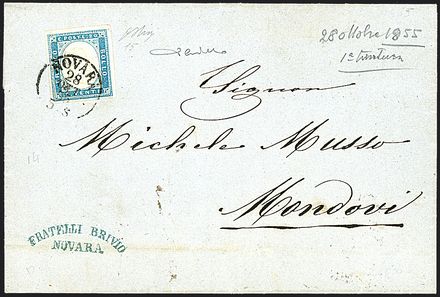 C. POSTE 20
BOLLO
NOVARA
28
28 ottobre 1855
1a tiratura
Signor
Michele Musso
Mondovì
FRATELLI BRIVIO
NOVARA